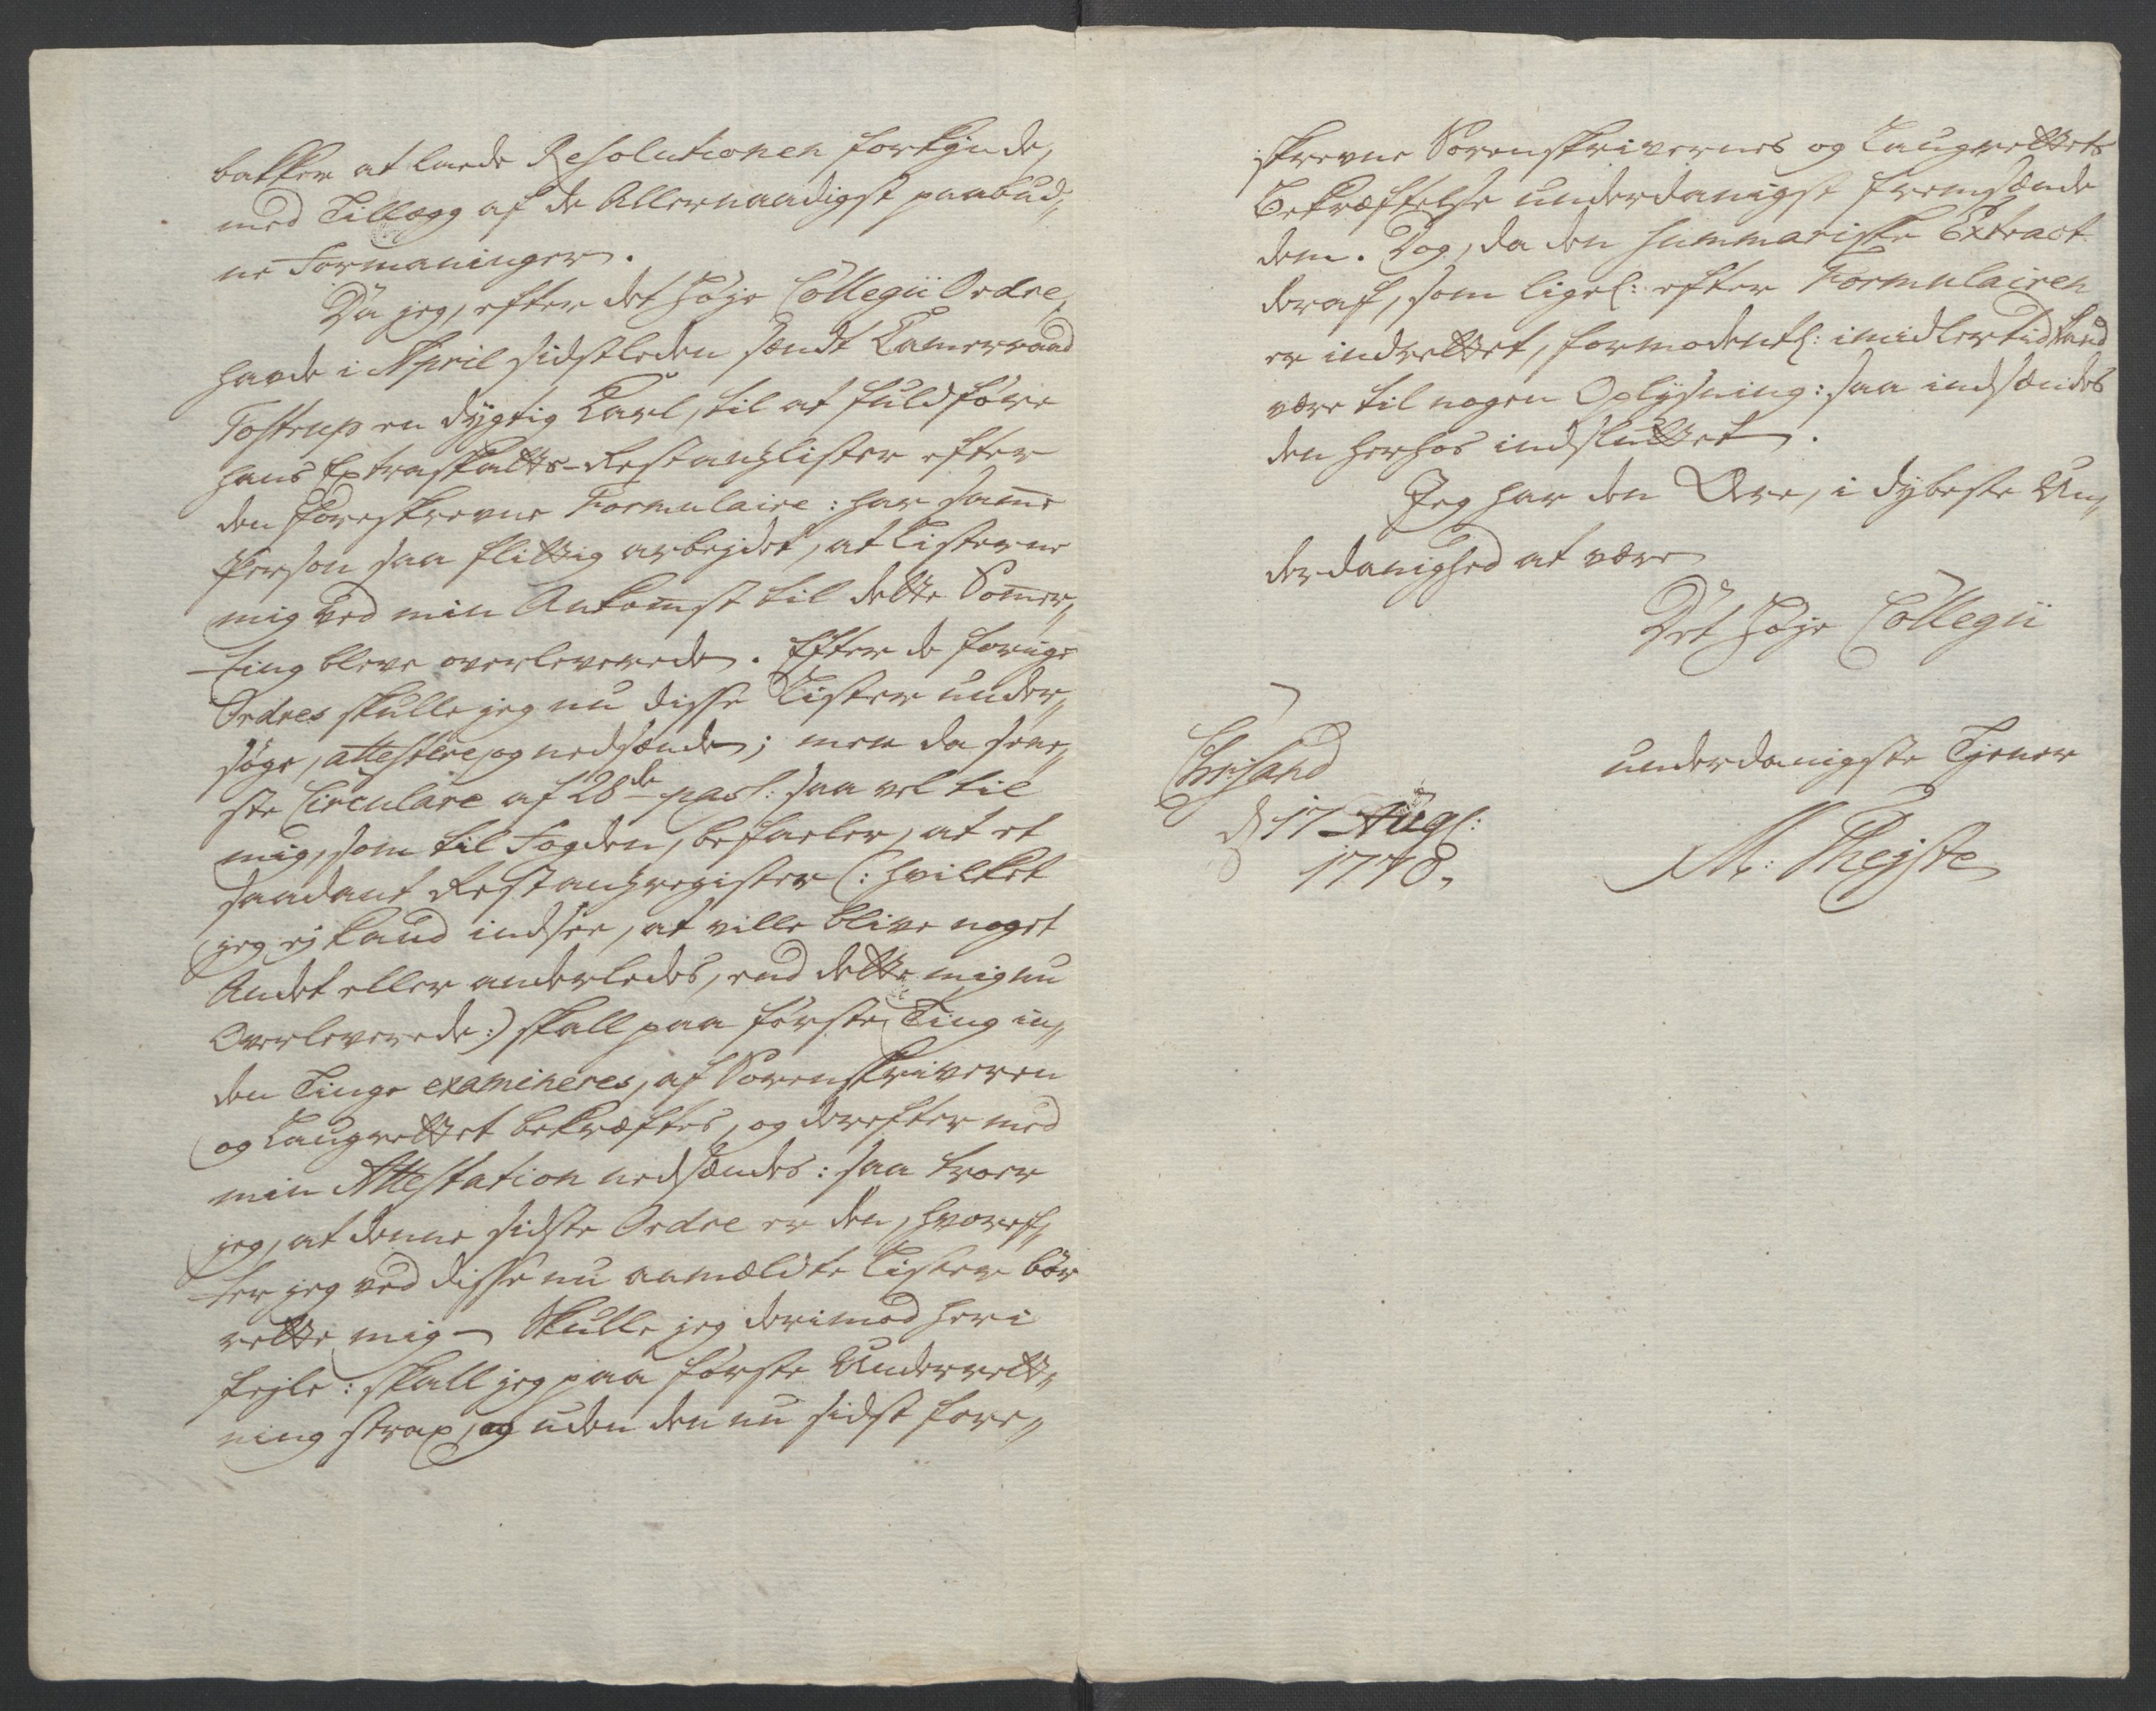 bakken at lade Resolutionen forkynde,
med Tillæg af de Allernaadigst paabud„
ne Formaninger.
Da jeg, efter det høje Collegii Ordre,
havde i April sidstleden sendt Cammerraad
Tostrup en dygtig Karl, til at fuldføre
hans Extraskatts-Restanzlister efter
den foreskrevne Formulaire: har samme
Person saa flittig arbejdet, at Listerne
mig ved min Ankomst til dette Sommer„
ting bleve overleverede. Efter de forrige
Ordres skulle jeg nu disse Lister under„
søge, attestere, og nedsænde; men da sene„
ste Circulare af 28de pass: saa vel til
mig, som til Fogden, befaler, at et
saadant Restanzregister (: hvilket
jeg ej kand indsee, at ville blive noget
Andet eller anderledes, end dette mig nu
Overleverede:) skall paa første Ting in„
den Tinge examineres, af Sorenskriveren
og Laugrettet bekræftes, og derefter med
min Attestation nedsændes: saa troer
jeg, at denne sidste Ordre er den, hvoref„
ter jeg ved disse nu anmældte Lister bør
rette mig - Skulle jeg derimod heri
fejle: skall jeg paa første Underrett„
ning strax, og uden den nu sidst fore„
skrevne Sorenskrivernes og Laugrettets
Bekræftelse underdanigst fremsænde
dem. Dog, da den summariske Extract
deraf, som ligel: efter Formulairen
er indrettet, formodentl: imidlertid kand
være til nogen Oplysning: saa indsændes
den herhos indsluttet.
Jeg har den Ære, i dybeste Un„
derdanighed at være
Det høje Collegii
Chrisand
d 17 Aug:
1778.
underdanigste Tjener
N: Thejste